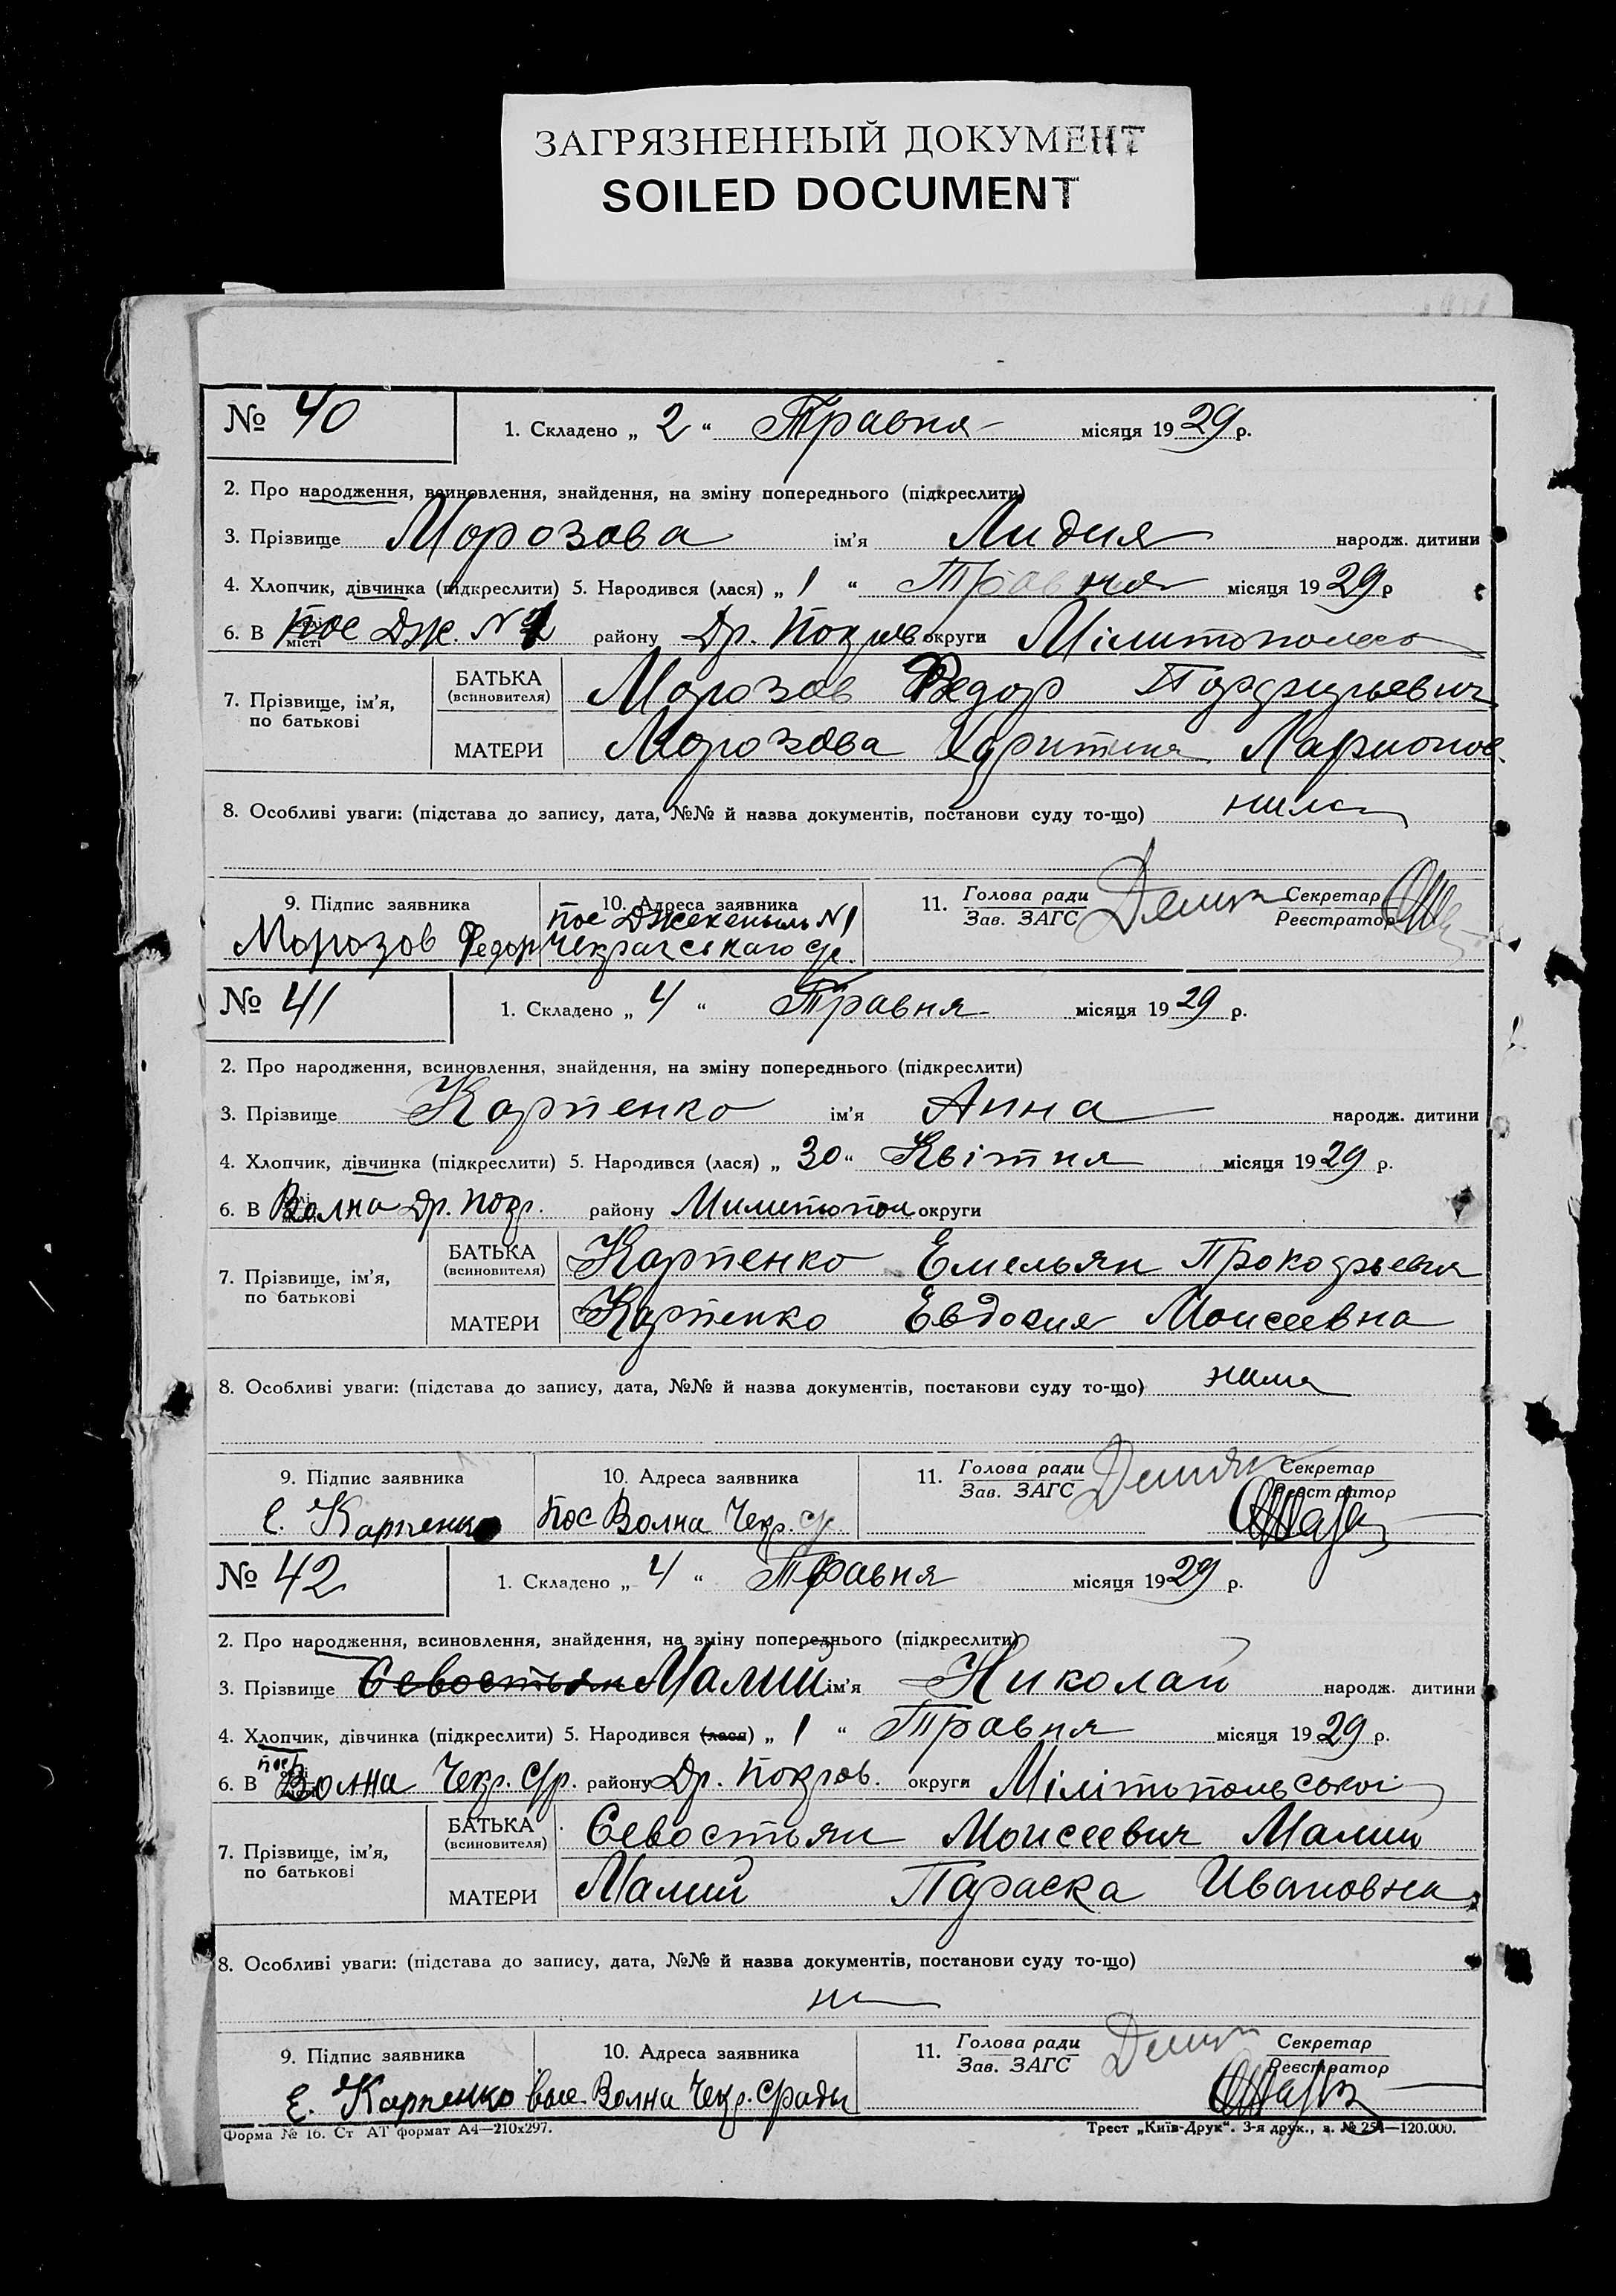 ЗАГРЯЗНЕННЫЙ ДОКУМЕНТ
SOILED DOCUMENT
№ 40
1. Складено „ 2 “ Травня місяця 1929 р.
2. Про народження, всиновлення, знайдення, на зміну попереднього (підкреслити)
3. Прізвище Морозова ім'я Лидия народж. дитини
4. Хлопчик, дівчинка (підкреслити) 5. Народився (лася) „ 1 “ Травня місяця 1929 р
6. В Пос Дж. № 1 району Др. Покров округи
7. Прізвище, ім'я, по батькові
БАТЬКА (всиновителя) Морозов Федор
МАТЕРИ Морозова Харитина Ларионов.
8. Особливі уваги: (підстава до запису, дата, №№ й назва документів, постанови суду то-що)
9. Підпис заявника
Морозов Федор
10. Адреса заявника
пос № 1
11. Голова ради
Зав. ЗАГС
Секретар
Реєстратор
№ 41
1. Складено „ 4 “ Травня місяця 1929 р.
2. Про народження, всиновлення, знайдення, на зміну попереднього (підкреслити)
3. Прізвище Карпенко ім'я Анна народж. дитини
4. Хлопчик, дівчинка (підкреслити) 5. Народився (лася) „ 30 “ Квітня місяця 1929 р.
6. В Волна Др. Покр. району Милитопол округи
7. Прізвище, ім'я, по батькові
БАТЬКА (всиновителя) Карпенко Емельян Прокофьевич
МАТЕРИ Карпенко Евдокия Моисеевна
8. Особливі уваги: (підстава до запису, дата, №№ й назва документів, постанови суду то-що) нима
9. Підпис заявника
Е. Карпенко
10. Адреса заявника
Пос Волна Чекр. с/р
11. Голова ради
Зав. ЗАГС
Секретар
Реєстратор
№ 42
1. Складено „ 4 “ Травня місяця 1929 р.
2. Про народження, всиновлення, знайдення, на зміну попереднього (підкреслити)
3. Прізвище Севостьян Малий ім'я Николай народж. дитини
4. Хлопчик, дівчинка (підкреслити) 5. Народився (лася) „ 1 “ Травня місяця 1929 р.
6. В пос Волна Чекр. с/р. району Др. Покров. округи Мілітопольської
7. Прізвище, ім'я, по батькові
БАТЬКА (всиновителя) Севостьян Моисеевич Малий
МАТЕРИ Малий Параска Ивановна
8. Особливі уваги: (підстава до запису, дата, №№ й назва документів, постанови суду то-що)
9. Підпис заявника
Е. Карпенко
10. Адреса заявника
выс. Волна Чекр. с/ради
11. Голова ради
Зав. ЗАГС
Секретар
Реєстратор
Форма № 16. Ст АТ формат А4—210x297.
Трест „Київ-Друк“. 3-я друк., з. № 254—120.000.